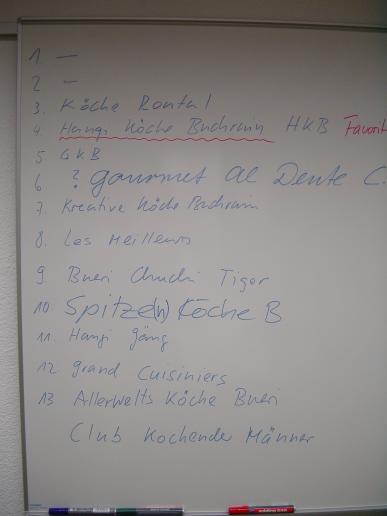 1 —
2 —
3. Köche Rontal
4. Hangi Köche Buchrain HKB Favorit
5 GKB
6 ? gourmet al Dente C.
7. Kreative Köche Buchrain
8. Les Meilleurs
9. Bueri Chuchi Tiger
10. Spitze(n) Köche B
11. Hangi Gäng
12 grand Cuisiniers
13 Allerwelts Köche Bueri
Club Kochender Männer